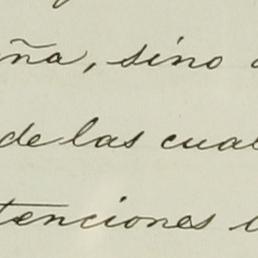 ña, sino
de las cual
tenciones